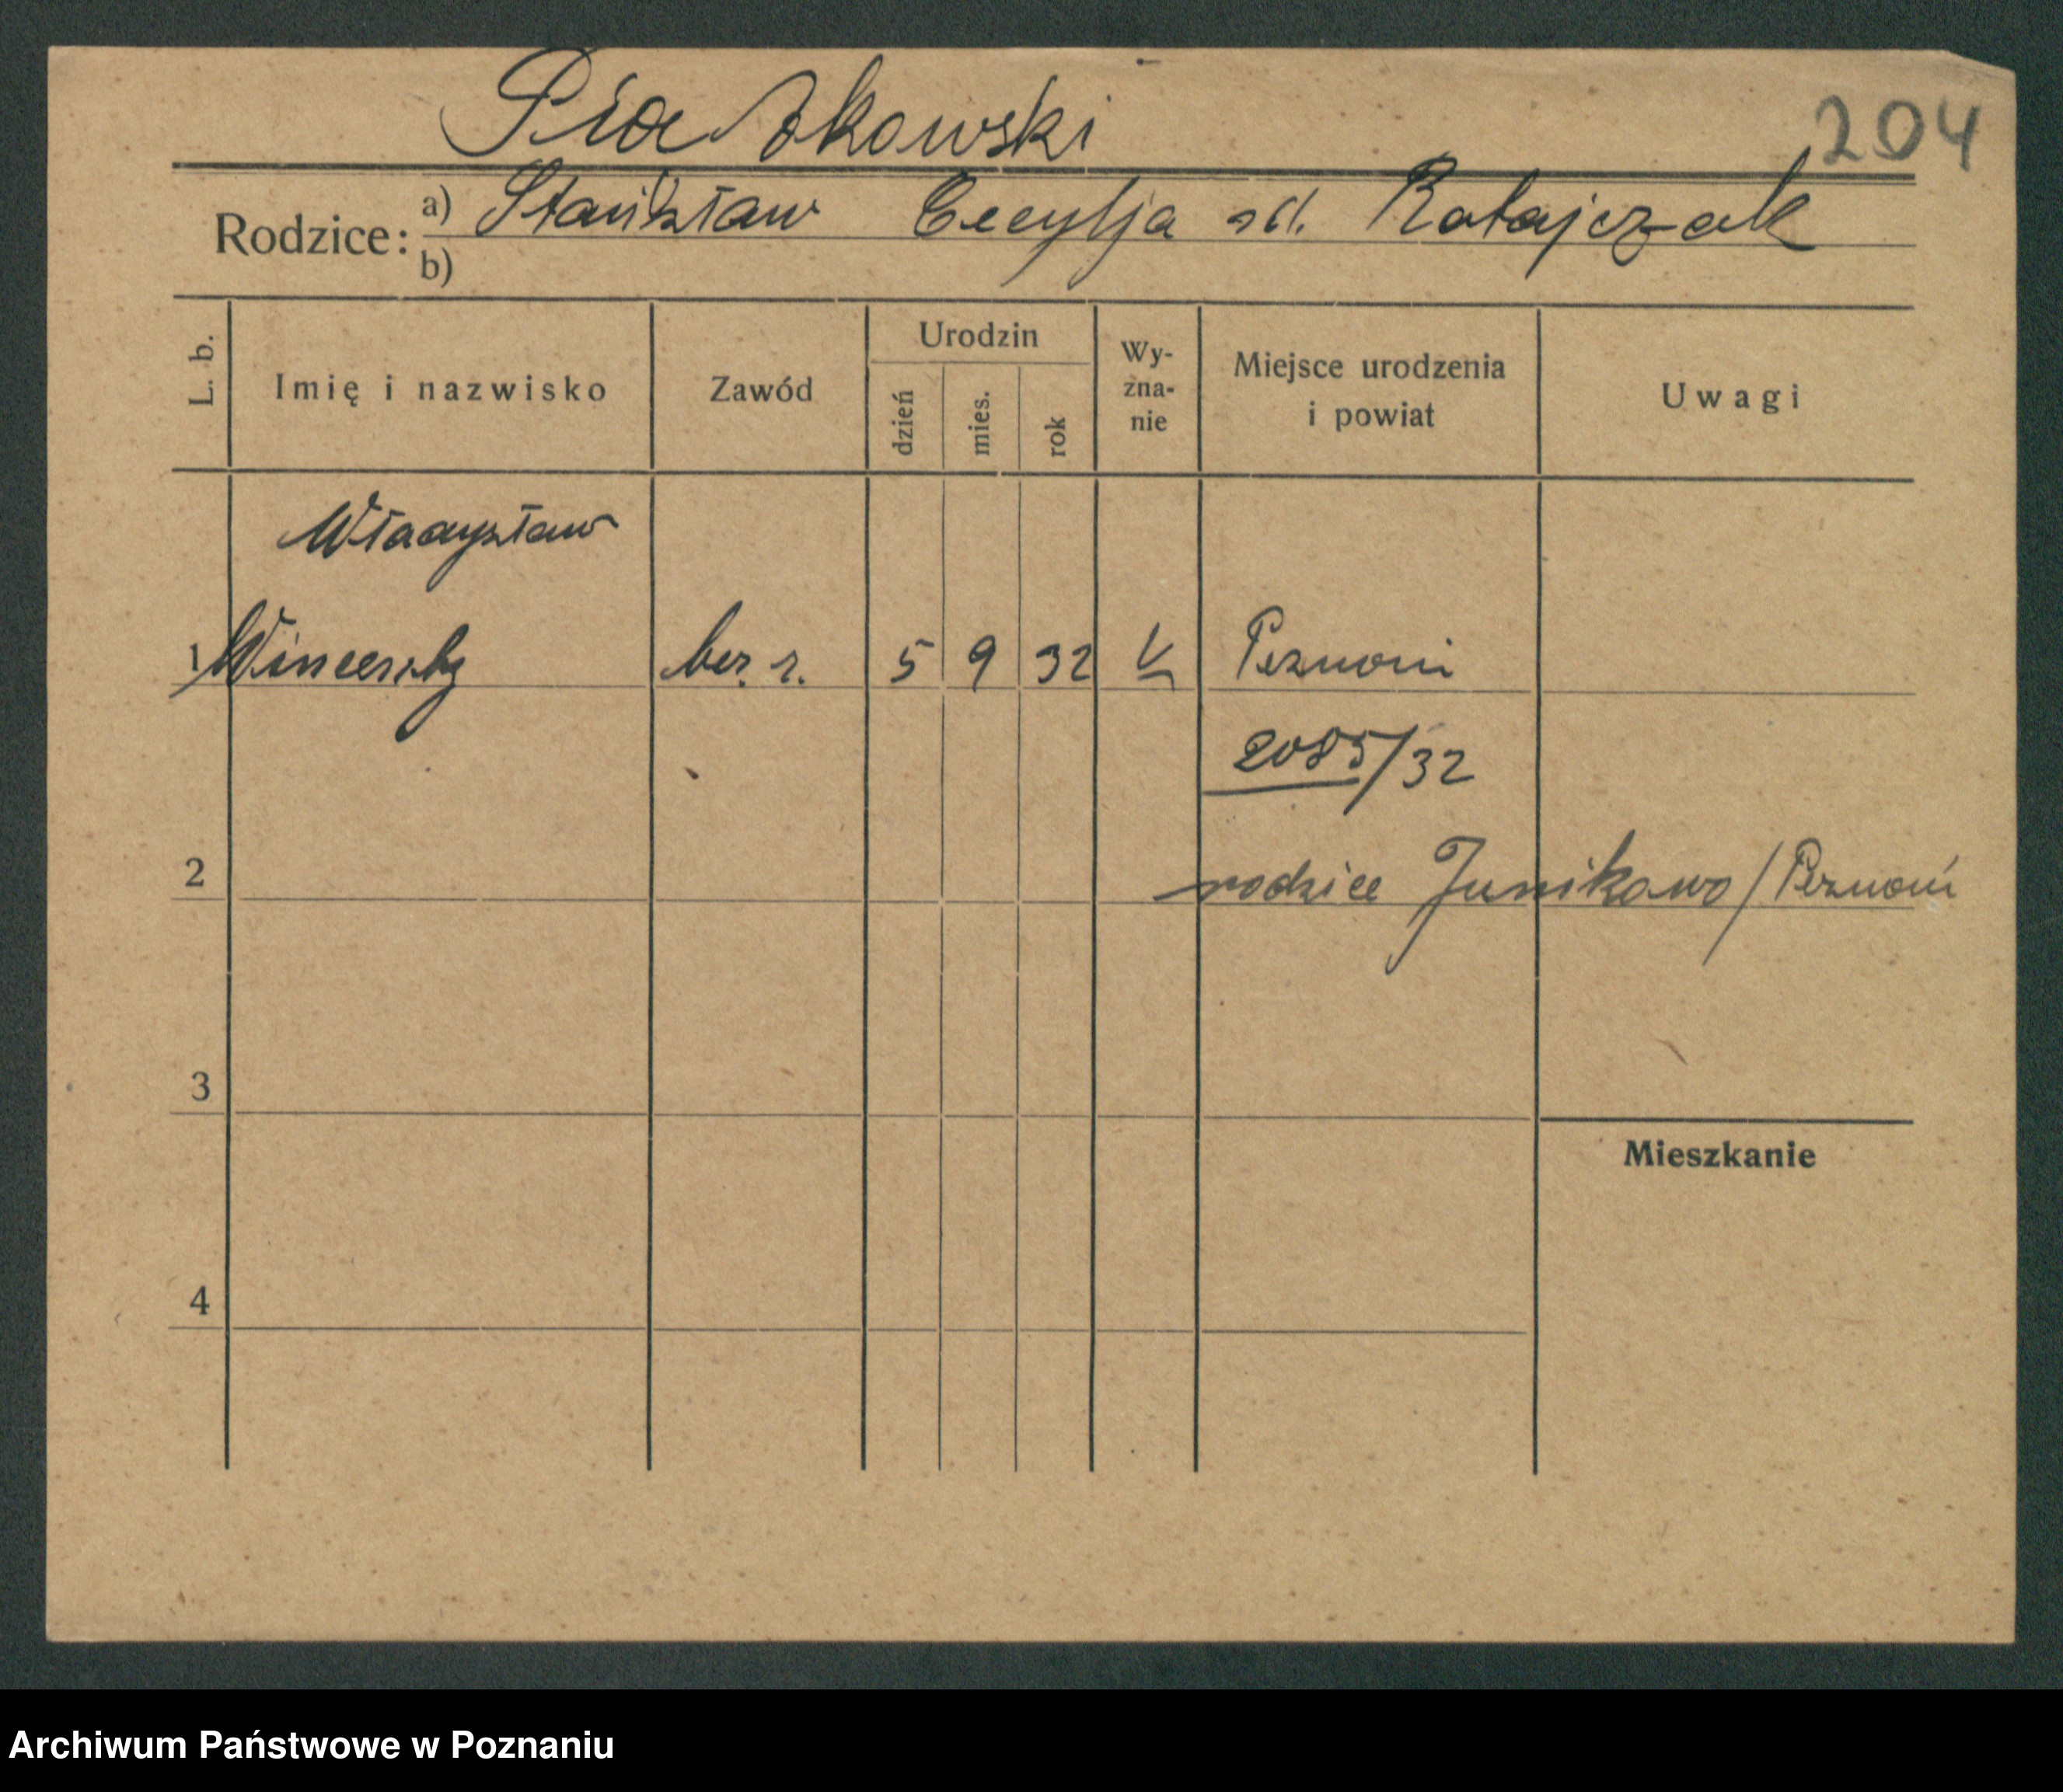 Piaskowski
204
Rodzice: a) Stanisław Cecylja zd. Ratajczak
b)
L. b.
Imię i nazwisko
Zawód
Urodzin
dzień
mies.
rok
Wy-
zna-
nie
Miejsce urodzenia
i powiat
Uwagi
Władysław
1 Wincenty bez. z. 5 9 32 Poznań
2085/32
2 rodzice Junikowo/Poznań
3
Mieszkanie
4
Archiwum Państwowe w Poznaniu